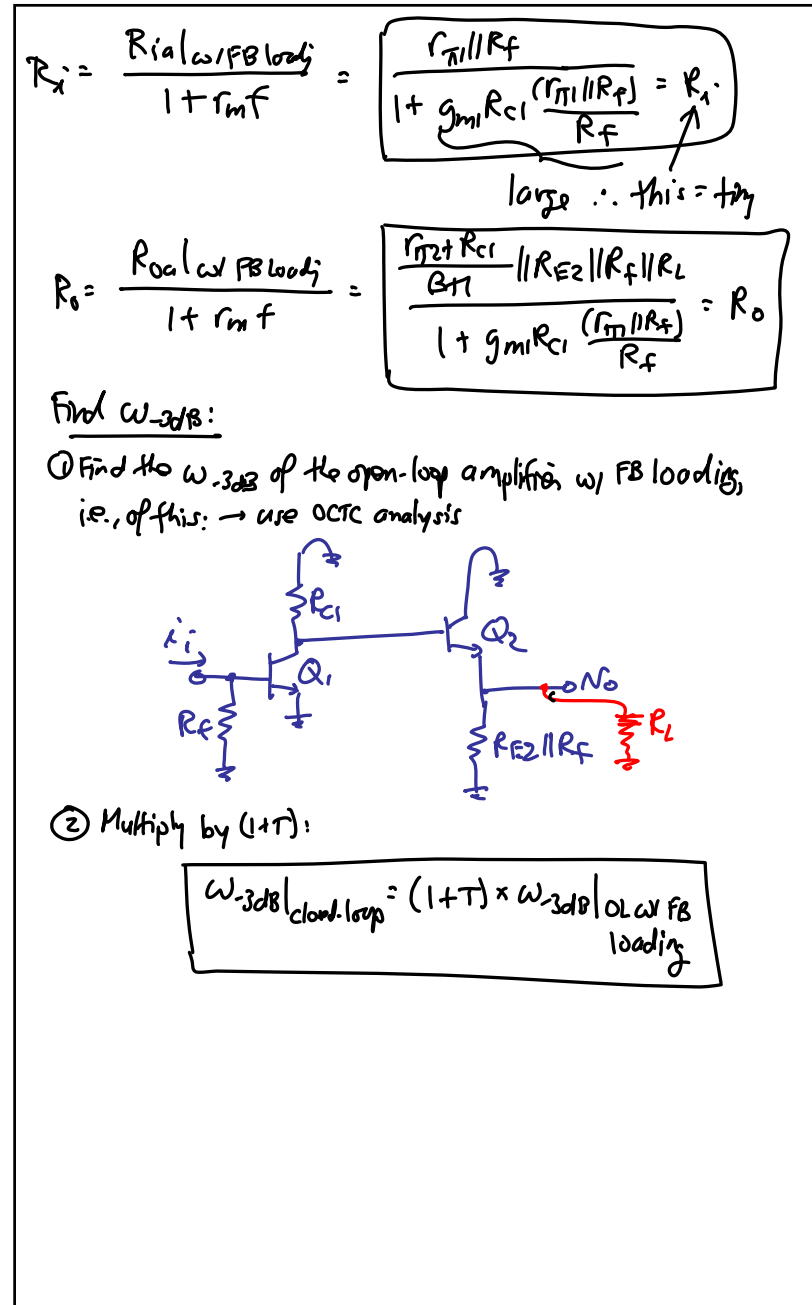 Ri = Ria|w/ FB loading / 1 + rmf = rπ1||Rf / 1 + gm1RC1 (rπ1||Rf)/Rf = Ri.
large ∴ this = tiny
Ro = Roa|w/ FB loading / 1 + rmf = (rπ2+RC1)/(β+1) ||RE2||Rf||RL / 1 + gm1RC1 (rπ1||Rf)/Rf = Ro
Find ω-3dB:
① Find the ω-3dB of the open-loop amplifier w/ FB loading,
i.e., of this: → use OCTC analysis
RC1
ii
Q1
Q2
No
Rf
RE2||Rf
RL
② Multiply by (1+T):
ω-3dB|closed-loop = (1+T) × ω-3dB|OL w/ FB
loading